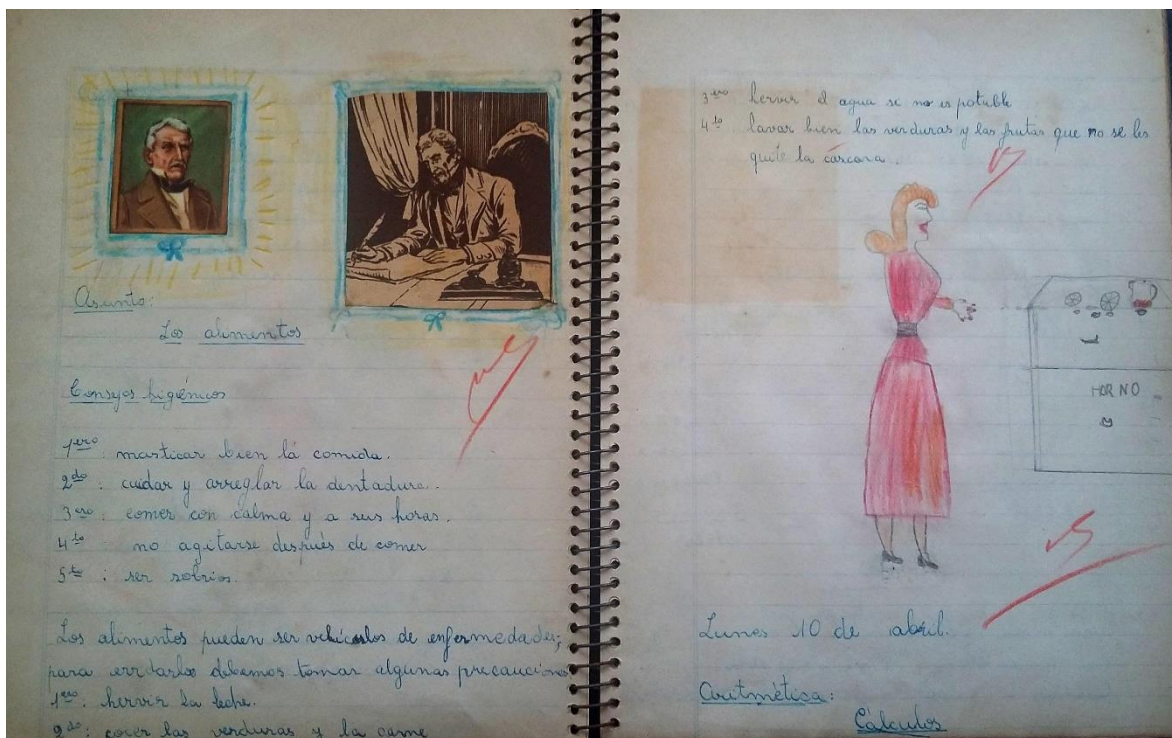 Asunto:
Los alimentos
Consejos higiénicos
1ero: masticar bien la comida.
2do: cuidar y arreglar la dentadura.
3ero: comer con calma y a sus horas.
4to no agitarse después de comer
5to: ser sobrios.
Los alimentos pueden ser vehículos de enfermedades;
para evitarlos debemos tomar algunas precauciones
1ero: hervir la leche.
2do: cocer las verduras y la carne
3ero hervir el agua si no es potable
4to lavar bien las verduras y las frutas que no se les
quite la cáscara.
HORNO
Lunes 10 de abril.
Aritmética:
Cálculos